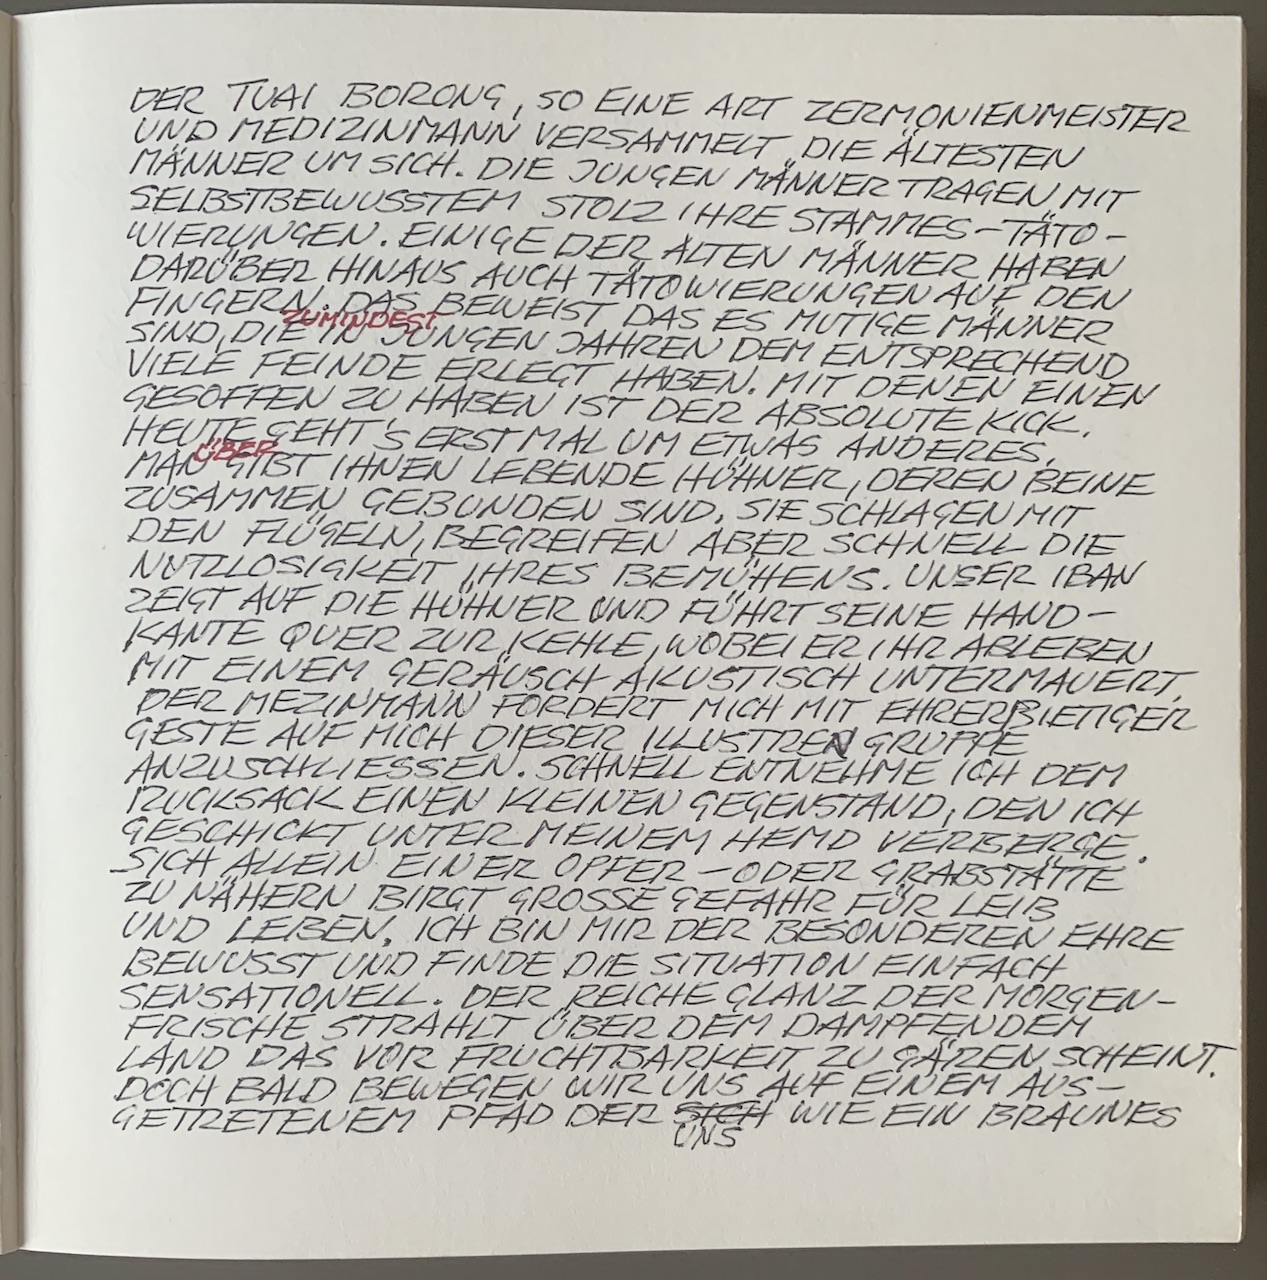 DER TUAI BORONG, SO EINE ART ZERMONIENMEISTER
UND MEDIZINMANN VERSAMMELT DIE ÄLTESTEN
MÄNNER UM SICH. DIE JUNGEN MÄNNER TRAGEN MIT
SELBSTBEWUSSTEM STOLZ IHRE STAMMES-TÄTO-
WIERUNGEN. EINIGE DER ALTEN MÄNNER HABEN
DARÜBER HINAUS AUCH TÄTOWIERUNGEN AUF DEN
FINGERN. DAS BEWEIST DAS ES MUTIGE MÄNNER
ZUMINDEST
SIND, DIE IN JUNGEN JAHREN DEM ENTSPRECHEND
VIELE FEINDE ERLEGT HABEN. MIT DENEN EINEN
GESOFFEN ZU HABEN IST DER ABSOLUTE KICK.
HEUTE GEHT'S ERST MAL UM ETWAS ANDERES.
ÜBER
MAN GIBT IHNEN LEBENDE HÜHNER, DEREN BEINE
ZUSAMMEN GEBUNDEN SIND. SIE SCHLAGEN MIT
DEN FLÜGELN, BEGREIFEN ABER SCHNELL DIE
NUTZLOSIGKEIT IHRES BEMÜHENS. UNSER IBAN
ZEIGT AUF DIE HÜHNER UND FÜHRT SEINE HAND-
KANTE QUER ZUR KEHLE, WOBEI ER IHR ABLEBEN
MIT EINEM GERÄUSCH AKUSTISCH UNTERMAUERT.
DER MEZINMANN FORDERT MICH MIT EHRERBIETIGER
GESTE AUF MICH DIESER ILLUSTREN GRUPPE
ANZUSCHLIESSEN. SCHNELL ENTNEHME ICH DEM
RUCKSACK EINEN KLEINEN GEGENSTAND, DEN ICH
GESCHICKT UNTER MEINEM HEMD VERBERGE.
SICH ALLEIN EINER OPFER-ODER GRABSTÄTTE
ZU NÄHERN BIRGT GROSSE GEFAHR FÜR LEIB
UND LEBEN. ICH BIN MIR DER BESONDEREN EHRE
BEWUSST UND FINDE DIE SITUATION EINFACH
SENSATIONELL. DER REICHE GLANZ DER MORGEN-
FRISCHE STRAHLT ÜBER DEM DAMPFENDEM
LAND DAS VOR FRUCHTBARKEIT ZU GÄREN SCHEINT.
DOCH BALD BEWEGEN WIR UNS AUF EINEM AUS-
GETRETENEM PFAD DER SICH WIE EIN BRAUNES
UNS